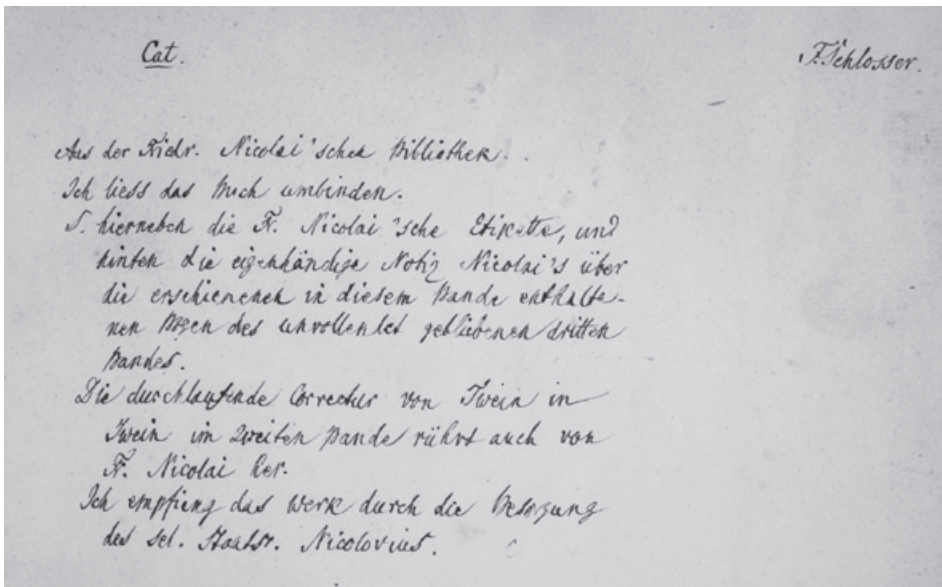 Cat.
F. Schlosser.
Aus der Fridr. Nicolai'schen Bibliothek.
Ich liess das Buch umbinden.
S. hierneben die Fr. Nicolai'sche Etikette, und
hinten die eigenhändige Notiz Nicolai's über
die erschienenen in diesem Bande enthalte-
nen Bogen des unvollendet gebliebenen dritten
Bandes.
Die durchlaufende Correctur von Twein in
Iwein im zweiten Bande rührt auch von
Fr. Nicolai her.
Ich empfieng das Werk durch die Besorgung
des sel. Staatsr. Nicolovius.